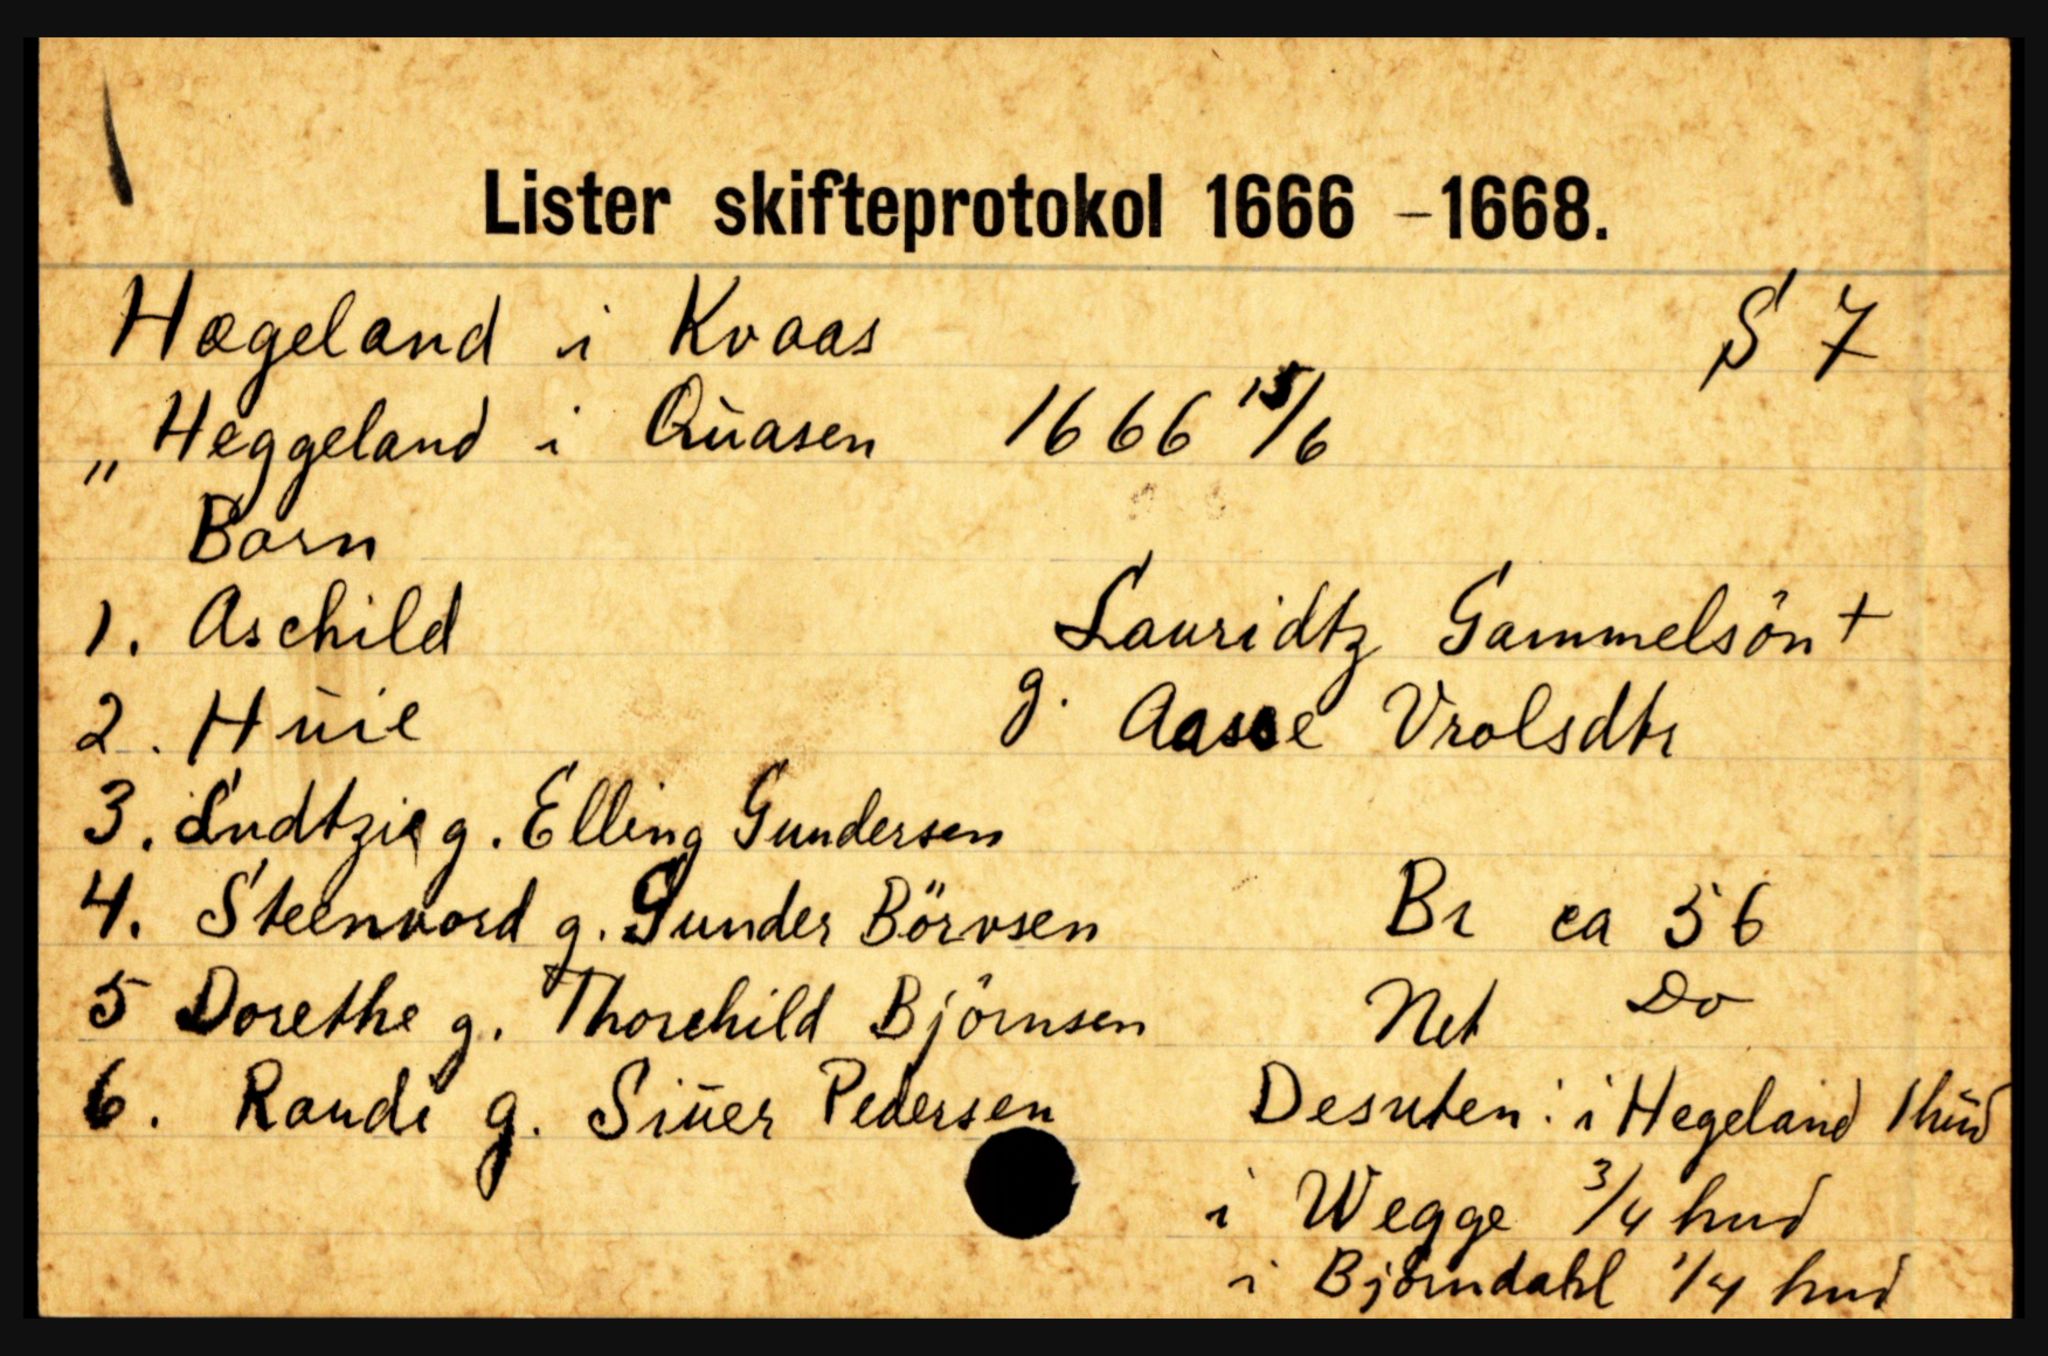 Lister skifteprotokol 1666 – 1668.
Hægeland i Kvaas S 7
„ Heggeland i Qŭasen 1666 15/6
Barn
1. Aschild Lauridtz Gammelsön +
2. Hŭie g. Aasse Vrolsdtr
3. Ludtzie g. Elling Gundersen
4. Steenvord g. Gunder Börvsen Br ca 56
5 Dorethe g. Thorchild Björnsen Net Do
6. Randi g. Siŭer Pedersen Desuten: i Hegeland 1 hŭd
i Wegge 3/4 hud
i Björndahl 1/4 hud